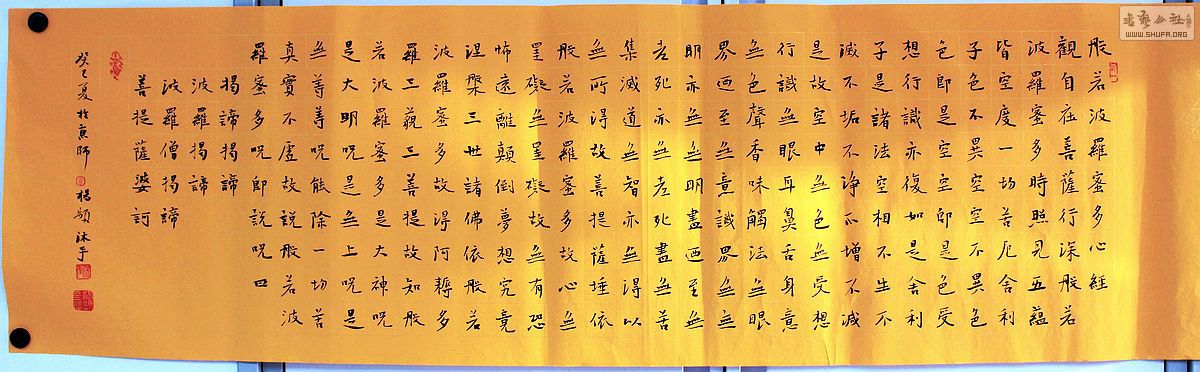 般若波羅蜜多心經
觀自在菩薩行深般若
波羅蜜多時照見五蘊
皆空度一切苦厄舍利
子色不異空空不異色
色即是空空即是色受
想行識亦復如是舍利
子是諸法空相不生不
滅不垢不淨不增不減
是故空中無色無受想
行識無眼耳鼻舌身意
無色聲香味觸法無眼
界迺至無意識界無無
明亦無無明盡迺至無
老死亦無老死盡無苦
集滅道無智亦無得以
無所得故菩提薩埵依
般若波羅蜜多故心無
罣礙無罣礙故無有恐
怖遠離顛倒夢想究竟
涅槃三世諸佛依般若
波羅蜜多故得阿耨多
羅三藐三菩提故知般
若波羅蜜多是大神呪
是大明呪是無上呪是
無等等呪能除一切苦
真實不虛故說般若波
羅蜜多呪即說呪曰
揭諦揭諦
波羅揭諦
波羅僧揭諦
菩提薩婆訶
癸巳夏於京師楊穎沐手
書藝公社
WWW.SHUFA.ORG